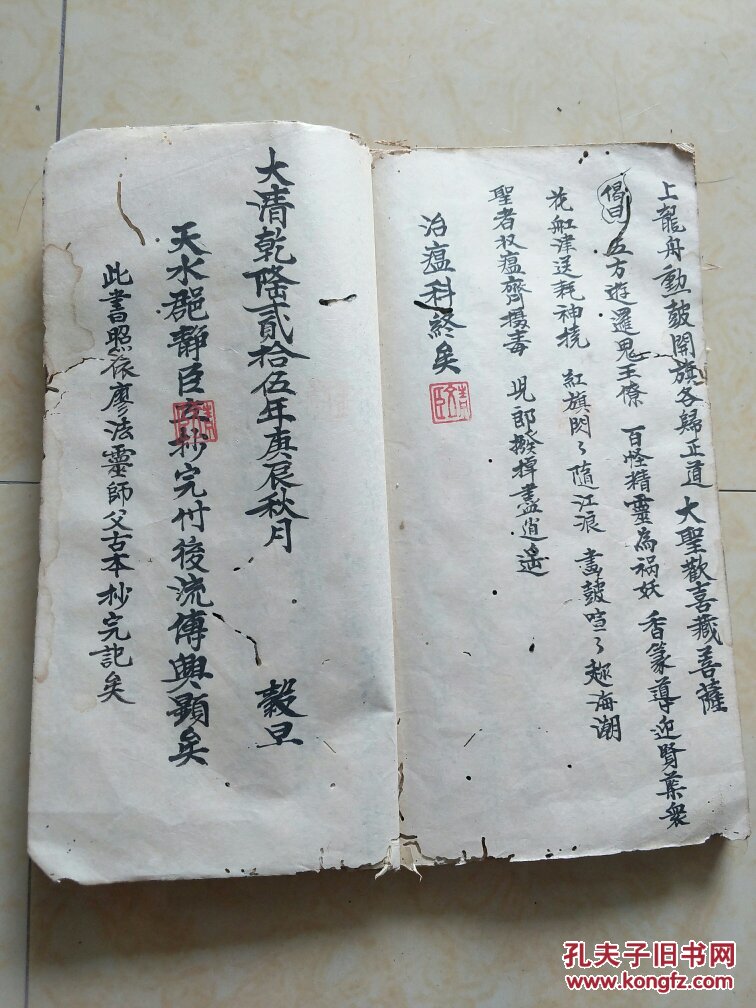 上龍舟勳皷開旗各歸正道 大聖歡喜藏菩薩
偈曰 五方遊邏鬼王僚 百怪精靈為禍妖 香篆導迎賢葉衆
花缸津送耗神撓 紅旗閃々隨江浪 畫皷喧々趂海潮
聖者收瘟齊摄毒 児郎撥棹盡逍遥
治瘟科終矣
大清乾隆貳拾伍年庚辰秋月 穀旦
天水郡靜臣立抄完付後流傳興顯矣
此書照依廖法靈師父古本抄完記矣
孔夫子旧书网
www.kongfz.com